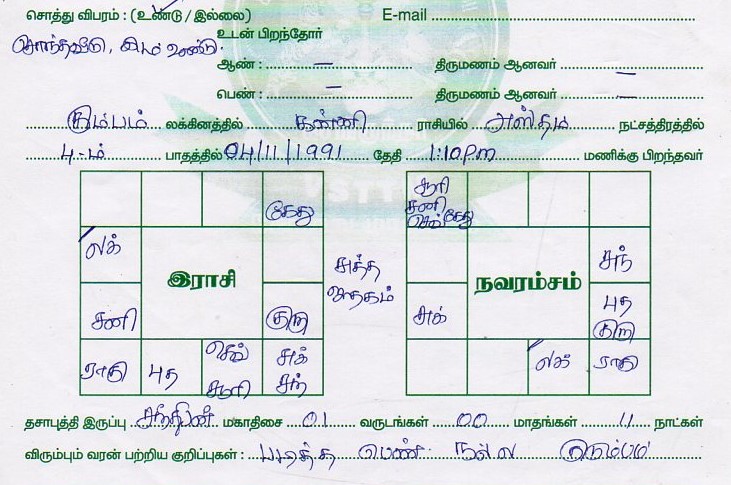 சொத்து விபரம் : (உண்டு / இல்லை) E-mail
உடன் பிறந்தோர்
சொந்தவீடு, இடம் உண்டு.
ஆண் : — திருமணம் ஆனவர் —
பெண் : — திருமணம் ஆனவர் —
கும்பம் லக்கினத்தில் கன்னி ராசியில் அஸ்தம் நட்சத்திரத்தில்
4-ம் பாதத்தில் 04/11/1991 தேதி 1:10pm மணிக்கு பிறந்தவர்
கேது
லக்
சனி
குரு
ராகு புத செவ் சூரி சுக் சந்
இராசி
சுத்த ஜாதகம்
சூரி சனி செவ் கேது
சந்
சுக்
புத குரு
லக் ராகு
நவாம்சம்
தசாபுத்தி இருப்பு சந்திரன் மகாதிசை 01 வருடங்கள் 00 மாதங்கள் 11 நாட்கள்
விரும்பும் வரன் பற்றிய குறிப்புகள் : படித்த பெண். நல்ல குடும்பம்